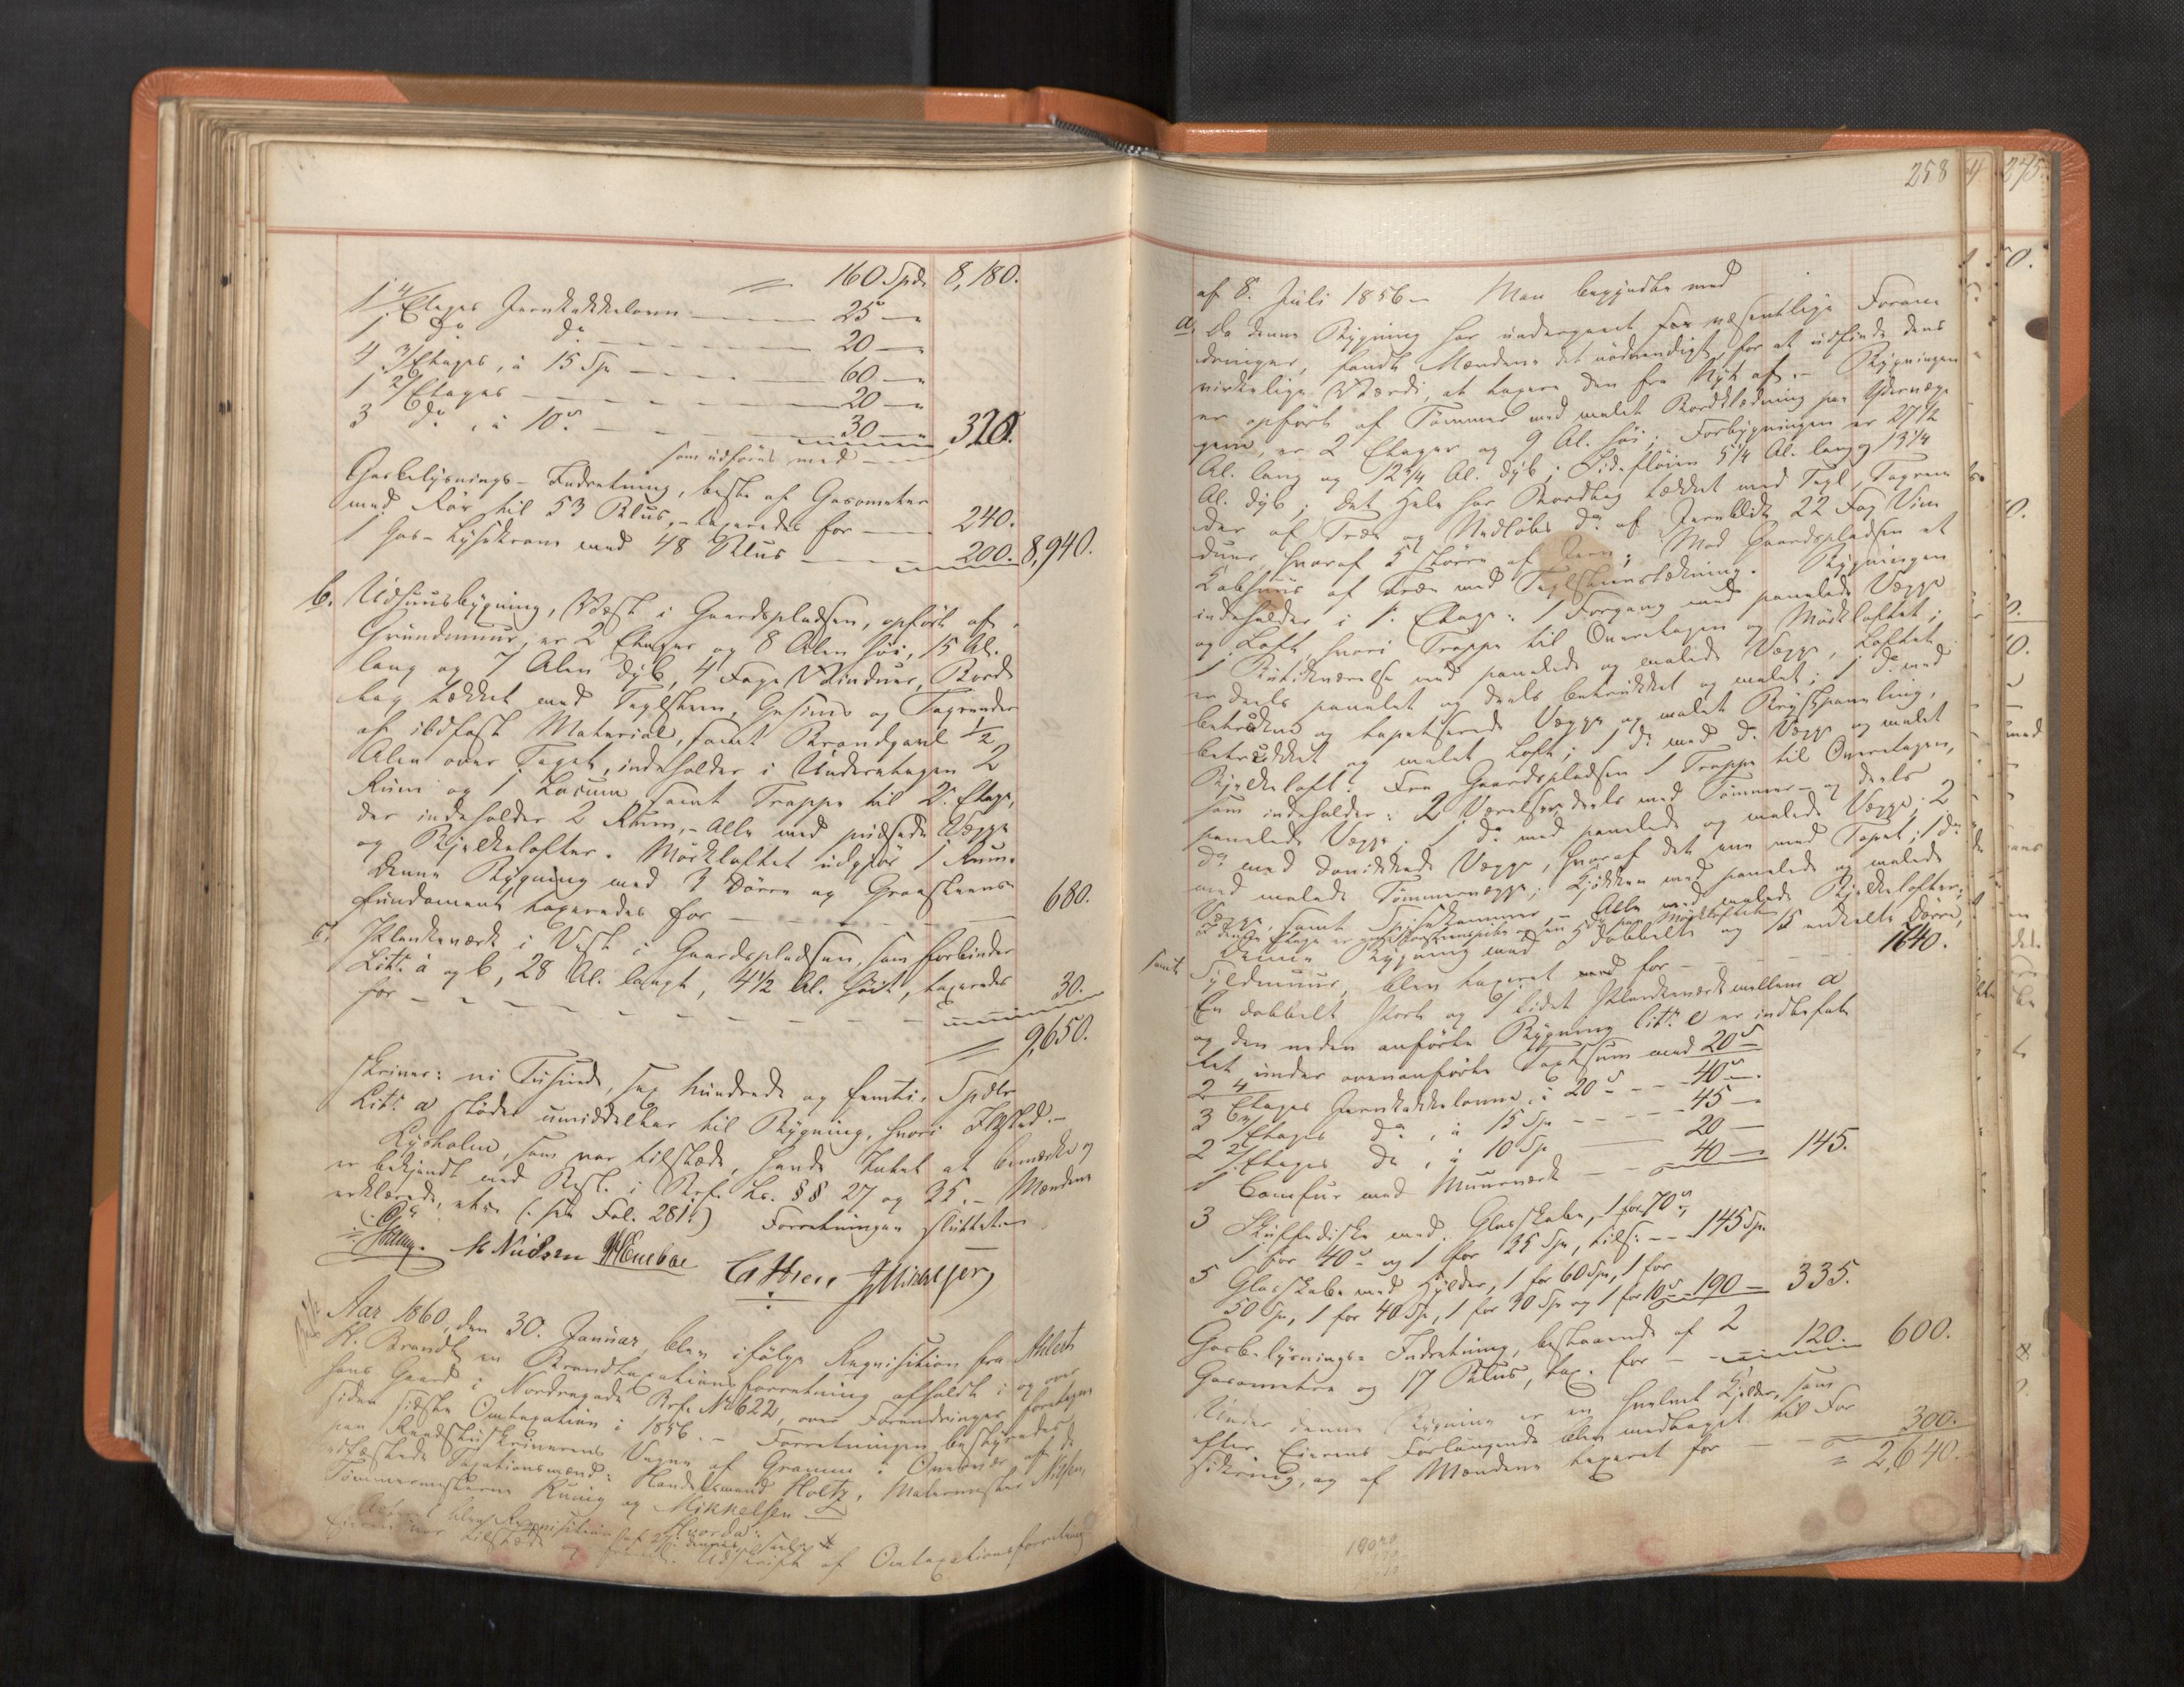 160 Spd. 8,180.
1 4/Etages Jernkakkelovn — 25 —
1 do do — 20 —
4 3/Etages, à 15 Sp — 60 —
1 2/Etages — 20 —
3 do, à 10 — 30 —
som udføres med — 320.
Gasbelysnings-Indretning, beste af Gasometer
med Rör til 53 Blus, taxeredes for — 240.
1 Gas-Lysekrone med 48 Blus — 200. 8,940.
b. Udhuusbygning, Vest i Gaardspladsen, opført af
Grundmuur, er 2 Etager og 8 Alen høi, 15 Al.
lang og 7 Alen dyb, 4 Fag Vinduer, Bord
tag tækket med Teglsteen, Gesims og Tagrender
af ildfast Material, samt Brandgavl 1/2
Alen over Taget, indeholder i Underetagen 2
Rum og 1 Locum samt Trappe til 2. Etage,
der indeholder 2 Rum, - Alle med pudsede Vægge
og Bjelkelofter. Mörkloftet udgjør 1 Rum.
Denne Bygning med 3 Dörre og Graasteens-
fundament taxeredes for — 680.
c. Plankeværk i Vest i Gaardspladsen, som forbinder
Litr. a og b, 28 Al. langt, 4 1/2 Al. høit, taxeredes
for — 30.
= 9,650.
skriver: ni Tusinde, sex hundrede og femti Spdlr
Litr. a støder umiddelbar til Bygning, hvori Ildsted.-
Lysholm, som var tilstede, havde Intet at bemærke og
er bekjendt med Best. i Brf. Lov. §§ 27 og 35. - Mændene
erklærede, etc. (: see Fol. 281 :) Forretningen sluttet.
M Nielsen
Aar 1860, den 30. Januar, blev ifølge Requisition fra Ahlert
H. Brandt en Brandtaxationsforretning afholdt i og over
hans Gaard i Nordregade Brf. No 622, over Forandringer foretagne
siden sidste Omtaxation i 1856. - Forretningen bestyredes
paa Raadstueskriverens Vegne af Gramm i Overvær af de
edfæstede Taxationsmænd: Handelsmand Holtz, Malermester Nissen,
Tömmermesterne Kunig og Mikkelsen
Hvorda:
Eieren var tilstede og freml. Udskrift af Omtaxationsforretning
258
af 8. Juli 1856 - Man begyndte med
a. Da denne Bygning har undergaaet saa væsentlige Foran
dringer, fandt Mændene det nødvendigt for at udfinde dens
virkelige Værdi, at taxere den fra Nyt af. - Bygningen
er opført af Tømmer med malet Bordklædning paa Ydervæg
gene, er 2 Etager og 9 Al. høi; Forbygningen er 27 1/2
Al. lang og 12 3/4 Al. dyb; Sidefløien 5 1/4 Al. lang og 13 1/4
Al. dyb; det Hele har Bordtag tækket med Tegl, Tagren
der af Træ og Nedløbs do af Jernblik 22 Fag Vin
duer, hvoraf 5 større af Jern; Mod Gaardspladsen et
Kobhuus af Træ med Teglsteenstækning. Bygningen
indeholder i 1. Etage: 1 Forgang med panelede Vægge
og Loft, hvori Trappe til Overetagen og Mörkloftet;
1 Butikværelse med panelede og malede Vægge, Loftet
er deels panelet og deels betrukket og malet; 1 do med
betrukne og tapetserede Vægge og malet Brystpaneling,
betrukket og malet Loft; 1 do med do Vægge og malet
Bjelkeloft. Fra Gaardspladsen 1 Trappe til Overetagen,
som indeholder: 2 Værelser deels med Tömmer- og deels
panelede Vægge, 1 do med panelede og malede Vægge, 2
do med Vægge, hvoraf det ene med Tapet; 1 do
med malede Tömmervægge; Kjökken med panelede og malede
Vægge, samt Spisekammer, - Alle med malede Bjelkelofter;
Denne Bygning med 5 dobbelte og 15 enkelte Dörre,
samt Syldmuur, blev taxeret for — 1640.
En dobbelt Port og 1 lidet Plankeværk mellem a
og den neden anførte Bygning litr. c er indbefat
tet under ovenanførte Taxtsum med 20
2 4/Etages Jernkakkelovne, à 20 — 40 —
3 3/Etages do, à 15 Sp — 45 —
2 2/Etages do, à 10 Sp — 20 —
1 Comfur med Muurværk — 40 — 145.
3 Skuffediske med Glasskabe, 1 for 70,
1 for 40 og 1 for 35 Sp, tils: — 145 Sp
5 Glasskabe med Hylder, 1 for 60 Sp, 1 for
50 Sp, 1 for 40 Sp, 1 for 30 Sp og 1 for 10 190 — 335.
Gasbelysnings-Indretning, bestaaende af 2
Gasometre og 17 Blus, tax. for — 120. 600.
Under denne Bygning er en hvelvet Kjelder, som
efter Eierens Forlangende blev medtaget til For
sikring, og af Mændene taxeret for — 300.
= 2,640.